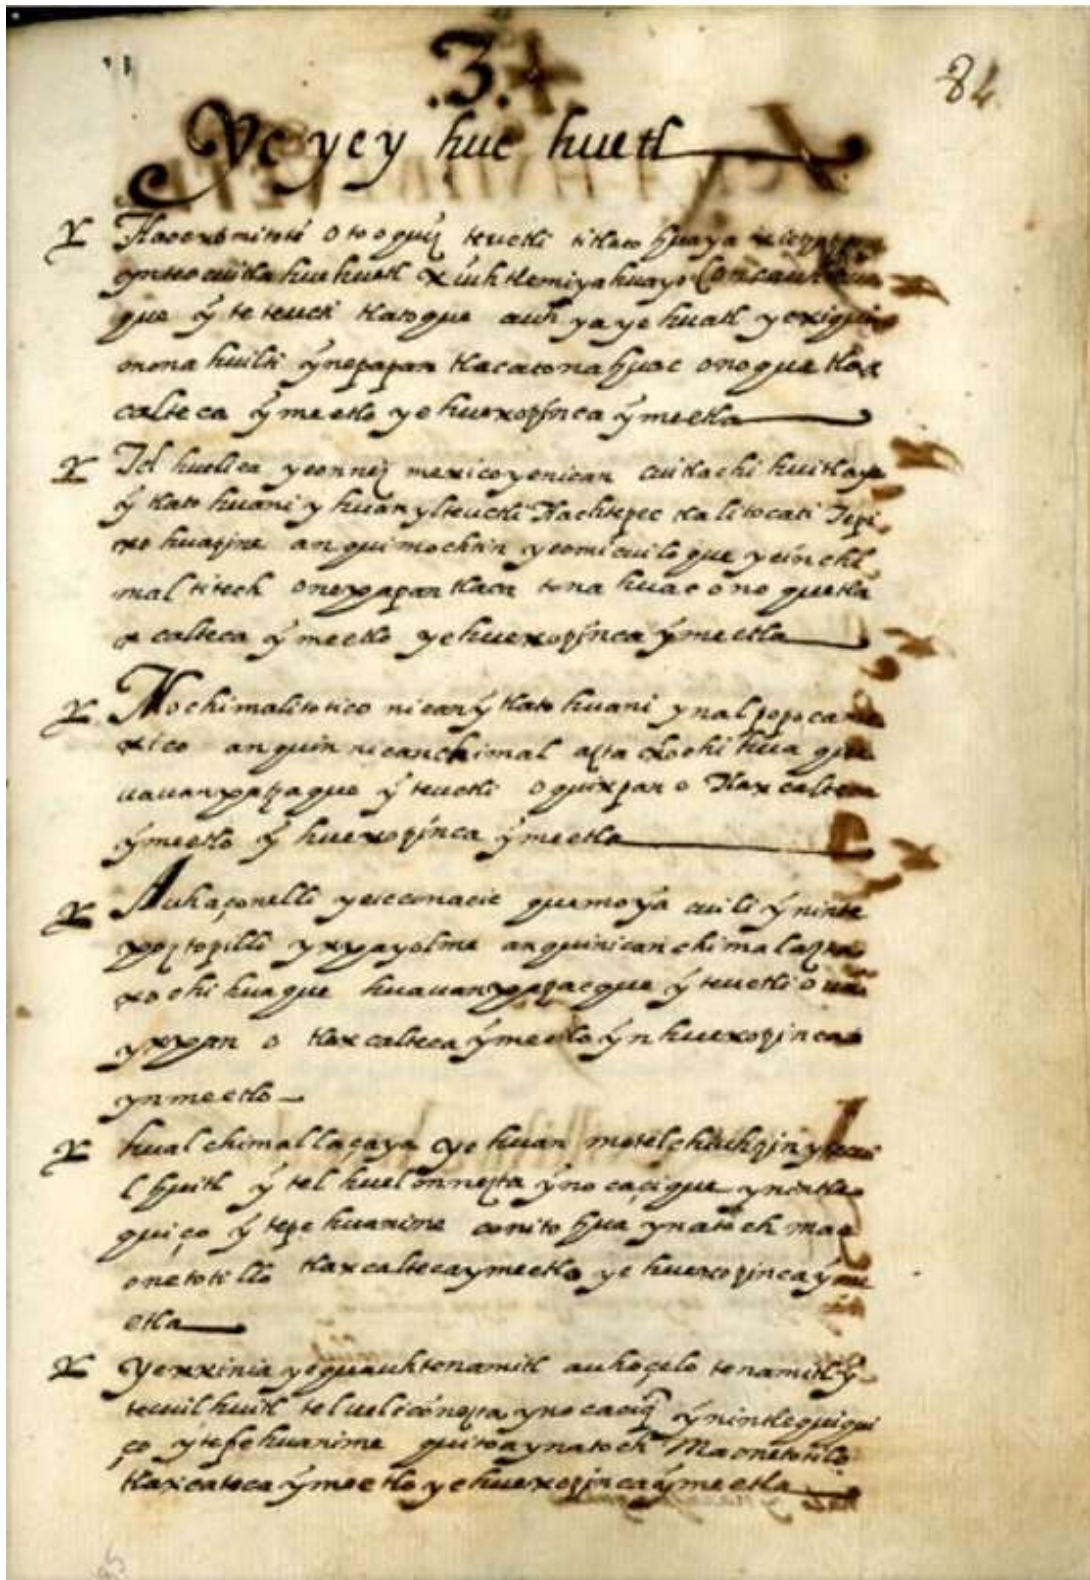 .3.
84
Yc yey hue huetl
Tlaoexomitoté o too quiz teuctli titlato huaya
ynteocuitla huehuetl xiuhtlemiyahuayo Concauhtia
que ý te teucti tlatoque auh ya ye huatl yexiqui
monahuilti ýnepapan tlacatonahuac onoque tlax
calteca ý meetlo ye huexotzinca ýmeetla
Tel huelica yeonnez mexicoyenican cuitlachi huitlaye
ý tlato huani y huanylteuctli Tlachtepec tlalitocati Tepi
xo huatzine anquimochtin yeomicuilo que yeinchi
mal titech onepapan tlaca tona huac ono quetla
x calteca ý meetlo ye huexotzinca ýmeetla
Mochimalitotico nican ý tlato huani ynalpopocame
xico anquin nicanchimal azta xochi hua que
uauanpatzaque ý teuctli o quixpan o Tlaxcalteca
ýmeetlo ý huexotzinca ýmeetla
Auhaçonelli yeiceconacic quemoyá cuili ýninte
poztopilli yxpayolme anquinican chimal azta
xo chi huaque huauanpatzacque ý teuctli o
yxpan o tlaxcalteca ýmeetlo ýn huexotzinca
ynmeetlo
hual chimal laçaya ye huan motelchiuhtzin ytecui
l huitl ý tel huel onnezta ýno caçique ynintle
quiço ý tepe huanime conito hua ynatoch ma
onetotillo tlaxcaltecaymeetlo ye huexotzinca ýme
etla
Yexxinia yequauhtenamitl auhoçelo tenamitl ý
tecuilhuitl tel uelicónezta yno caciq ýnintlequiqui
ço ytepehuanime quitoaynatoch Maonetotilo
tlaxcateca ýmeetlo ye huexotzincaýmeetla
95